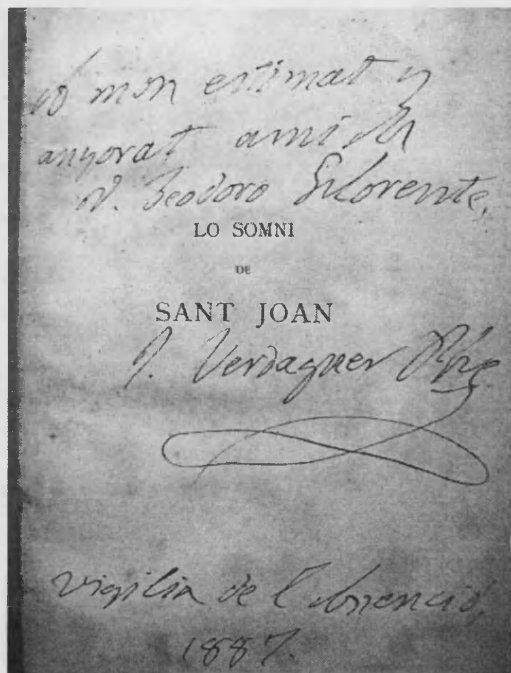 Al mon estimat y
anyorat amich
D. Teodoro Llorente.
LO SOMNI
DE
SANT JOAN
J. Verdaguer Pbre
Vigilia de l'Ascenció,
1887.